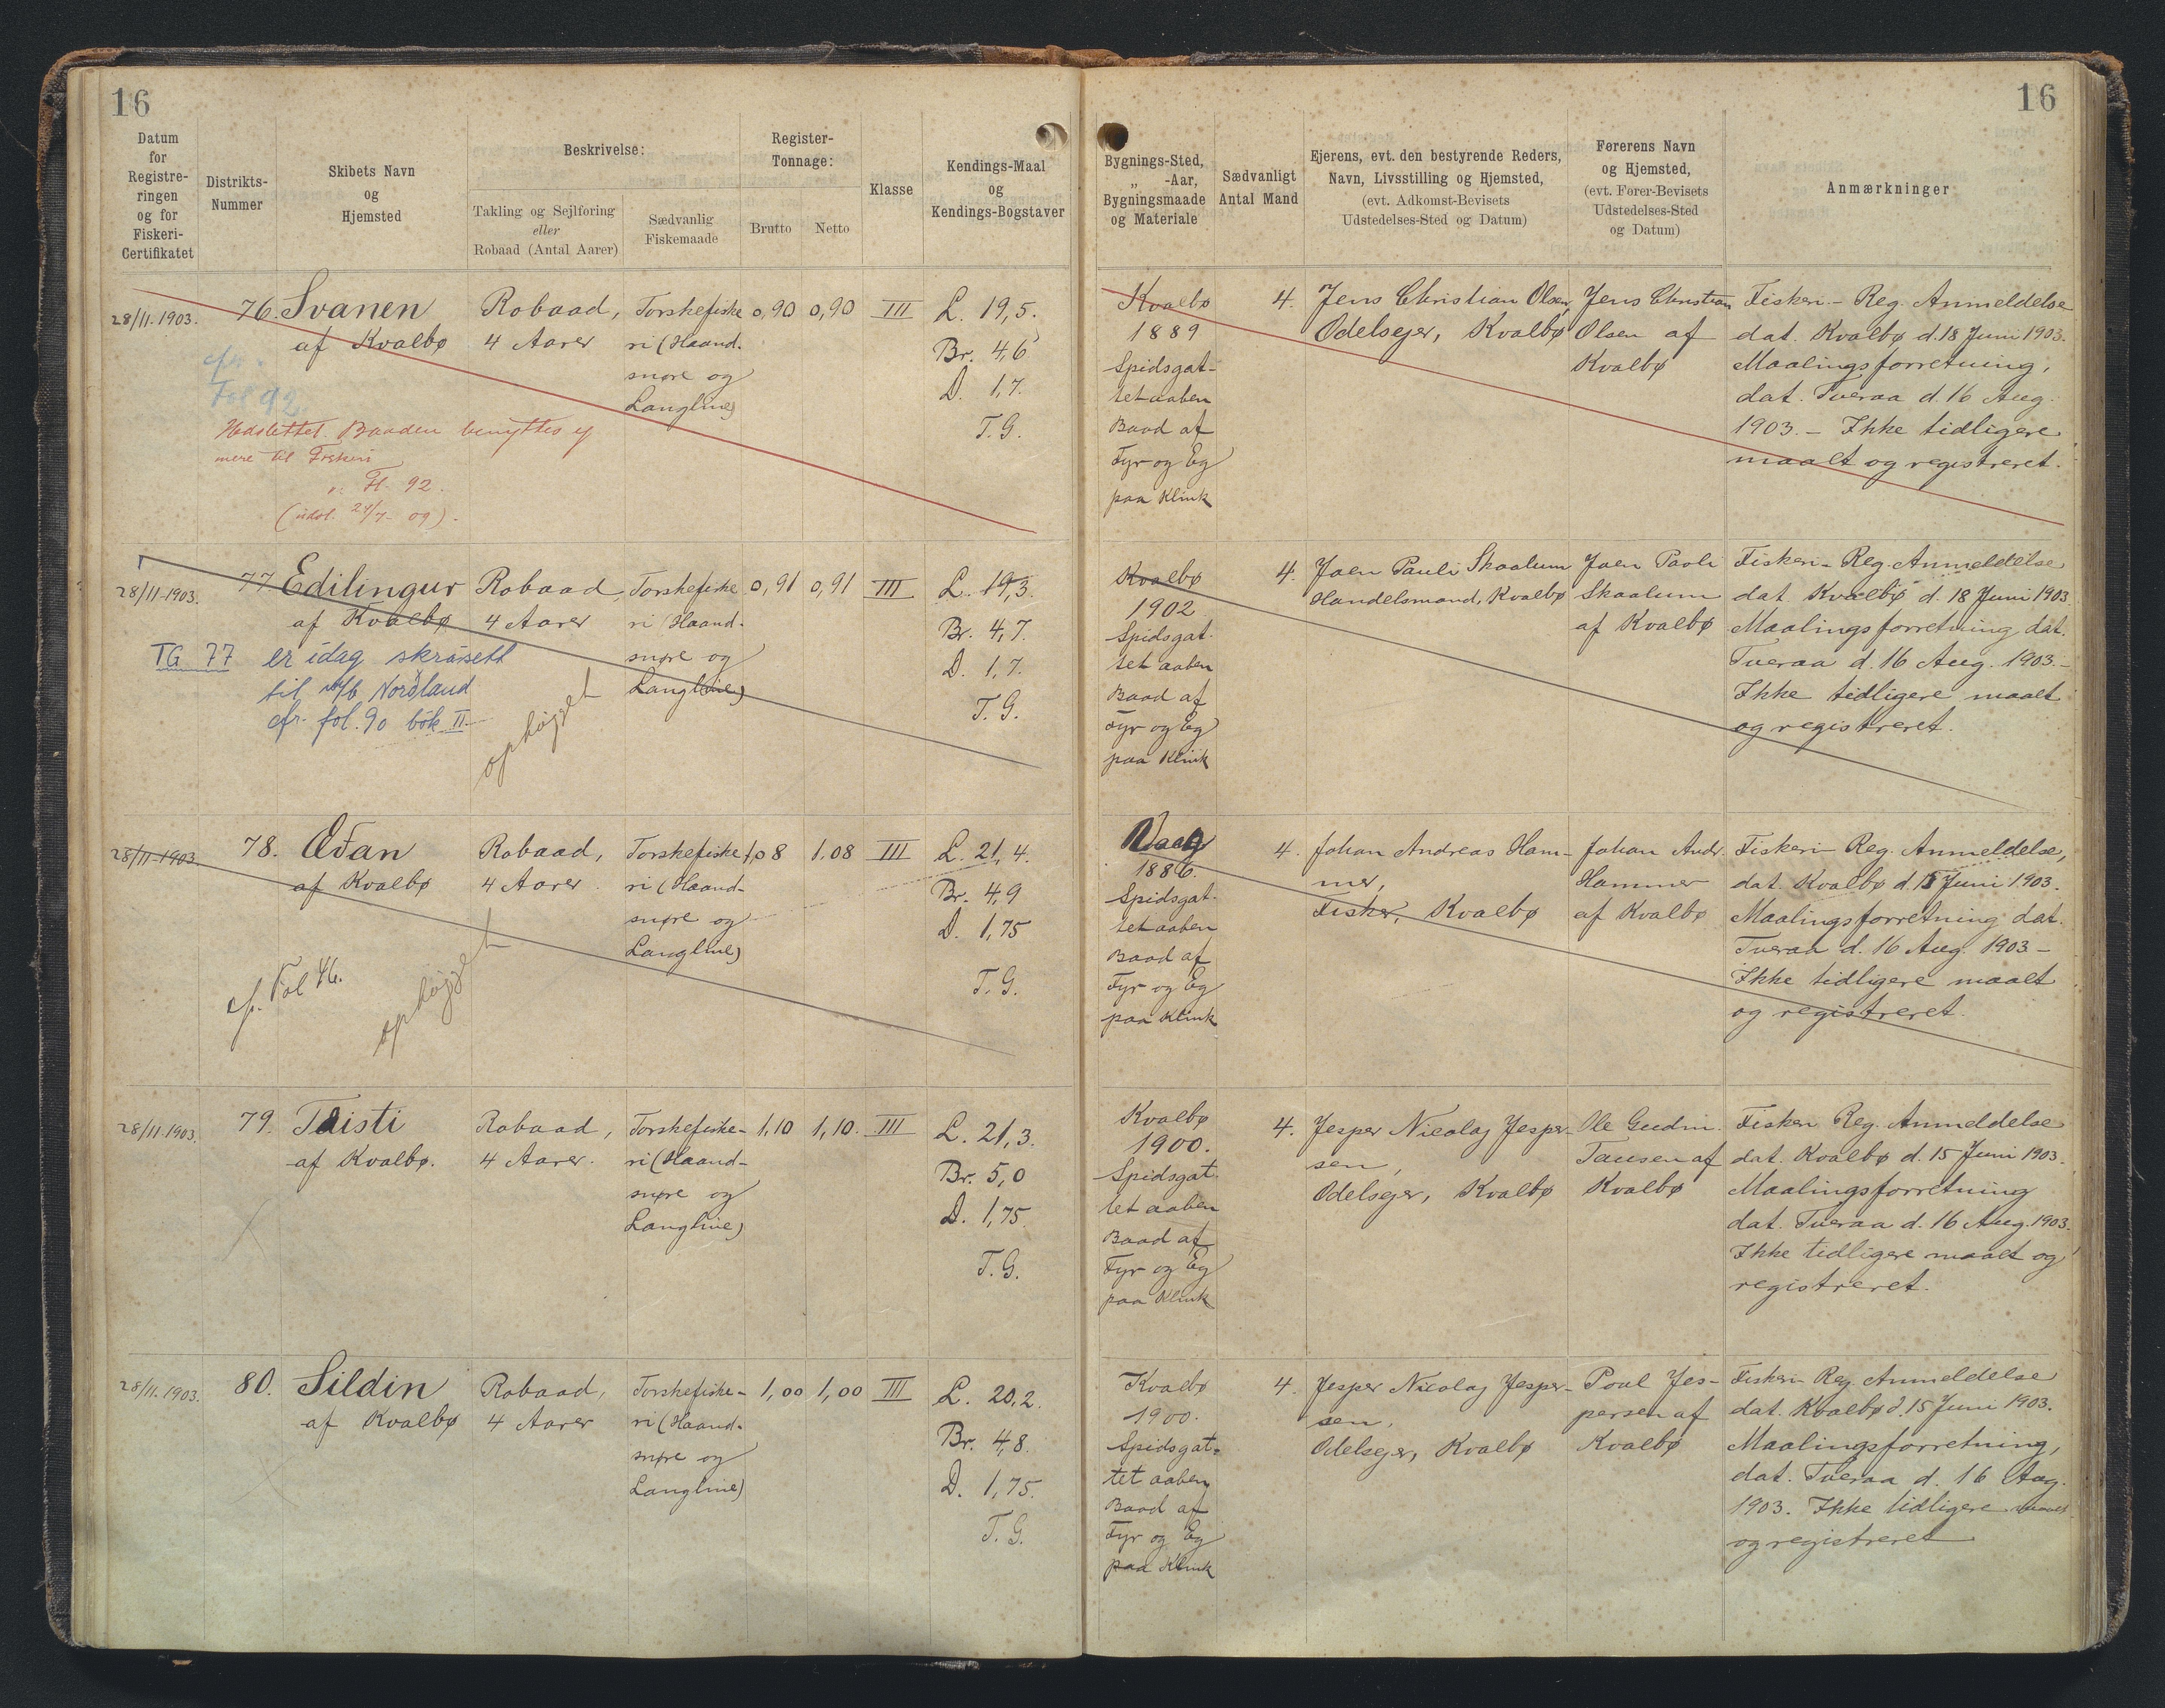 16
16
Datum
for
Registre-
ringen
og for
Fiskeri-
Certifikatet
Distrikts-
Nummer
Skibets Navn
og
Hjemsted
Beskrivelse:
Takling og Sejlføring
eller
Robaad (Antal Aarer)
Sædvanlig
Fiskemaade
Register-
Tonnage:
Brutto
Netto
Klasse
Kendings-Maal
og
Kendings-Bogstaver
Bygnings-Sted,
„ -Aar,
Bygningsmaade
og Materiale
Sædvanligt
Antal Mand
Ejerens, evt. den bestyrende Reders,
Navn, Livsstilling og Hjemsted,
(evt. Adkomst-Bevisets
Udstedelses-Sted og Datum)
Førerens Navn
og Hjemsted,
(evt. Fører-Bevisets
Udstedelses-Sted
og Datum)
Anmærkninger
28/11-1903.
76.
Svanen
af Kvalbø
cfr.
Fol 92
Udslettet. Baaden benyttes ej
mere til Fiskeri
v. Fl. 92.
(udsl. 24/7-09).
Robaad,
4 Aarer
Torskefiske
ri (Haand-
snøre og
Langline)
0,90
0,90
III
L. 19,5.
Br. 4,6
D. 1,7.
T.G.
Kvalbø
1889
Spidsgat-
tet aaben
Baad af
Fyr og Eg
paa Klink
4.
Jens Christian Olsen,
Odelsejer, Kvalbø
Jens Christian
Olsen af
Kvalbø
Fiskeri- Reg. Anmeldelse
dat. Kvalbø d. 18 Juni 1903.
Maalingsforretning,
dat. Tveraa d. 16 Aug.
1903. - Ikke tidligere
maalt og registreret.
28/11-1903.
77
Edilingur
af Kvalbø
TG 77 er idag skrásett
til m/b Norðland
cfr. fol. 90 bók II
ophøjet
Robaad
4 Aarer
Torskefiske
ri (Haand-
snøre og
Langline)
0,91
0,91
III
L. 19,3.
Br. 4,7.
D. 1,7.
T.G.
Kvalbø
1902
Spidsgat-
tet aaben
Baad af
Fyr og Eg
paa Klink
4.
Joen Pauli Skaalum
Handelsmand, Kvalbø
Joen Paoli
Skaalum
af Kvalbø
Fiskeri- Reg. Anmeldelse
dat. Kvalbø d. 18 Juni 1903
Maalingsforretning dat.
Tveraa d. 16 Aug. 1903. -
Ikke tidligere maalt
og registreret.
28/11-1903.
78.
Æðan
af Kvalbø
cfr. Fol 46.
ophøjet
Robaad,
4 Aarer
Torskefiske
ri (Haand-
snøre og
Langline)
1,08
1,08
III
L. 21,4.
Br. 4,9
D. 1,75
T.G.
Vaag
1886.
Spidsgat-
tet aaben
Baad af
Fyr og Eg
paa Klink
4.
Johan Andreas Ham-
mer,
Fisker, Kvalbø
Johan Andr.
Hammer
af Kvalbø
Fiskeri- Reg. Anmeldelse,
dat. Kvalbø d. 15 Juni 1903.
Maalingsforretning dat.
Tveraa d. 16 Aug. 1903 -
Ikke tidligere maalt
og registreret.
28/11-1903.
79.
Taisti
af Kvalbø.
Robaad,
4 Aarer.
Torskefiske-
ri (Haand-
snøre og
Langline)
1,10
1,10.
III
L. 21,3.
Br. 5,0
D. 1,75.
T.G.
Kvalbø
1900.
Spidsgat-
tet aaben
Baad af
Fyr og Eg
paa Klink
4.
Jesper Nicolaj Jesper-
sen,
Odelsejer, Kvalbø
Ole Gudm.
Tausen af
Kvalbø
Fiskeri Reg. Anmeldelse
dat. Kvalbø d. 15 Juni 1903.
Maalingsforretning
dat. Tveraa d. 16 Aug. 1903.
Ikke tidligere maalt og
registreret.
28/11-1903.
80.
Sildin
af Kvalbø
Robaad,
4 Aarer
Torskefiske-
ri (Haand-
snøre og
Langline)
1,00
1,00
III
L. 20,2.
Br. 4,8.
D. 1,75.
T.G.
Kvalbø
1900.
Spidsgat-
tet aaben
Baad af
Fyr og Eg
paa Klink
4.
Jesper Nicolaj Jesper-
sen,
Odelsejer, Kvalbø
Poul Jes-
persen af
Kvalbø
Fiskeri- Reg. Anmeldelse
dat. Kvalbø d. 15 Juni 1903.
Maalingsforretning,
dat. Tveraa d. 16 Aug.
1903. Ikke tidligere maalt
og registreret